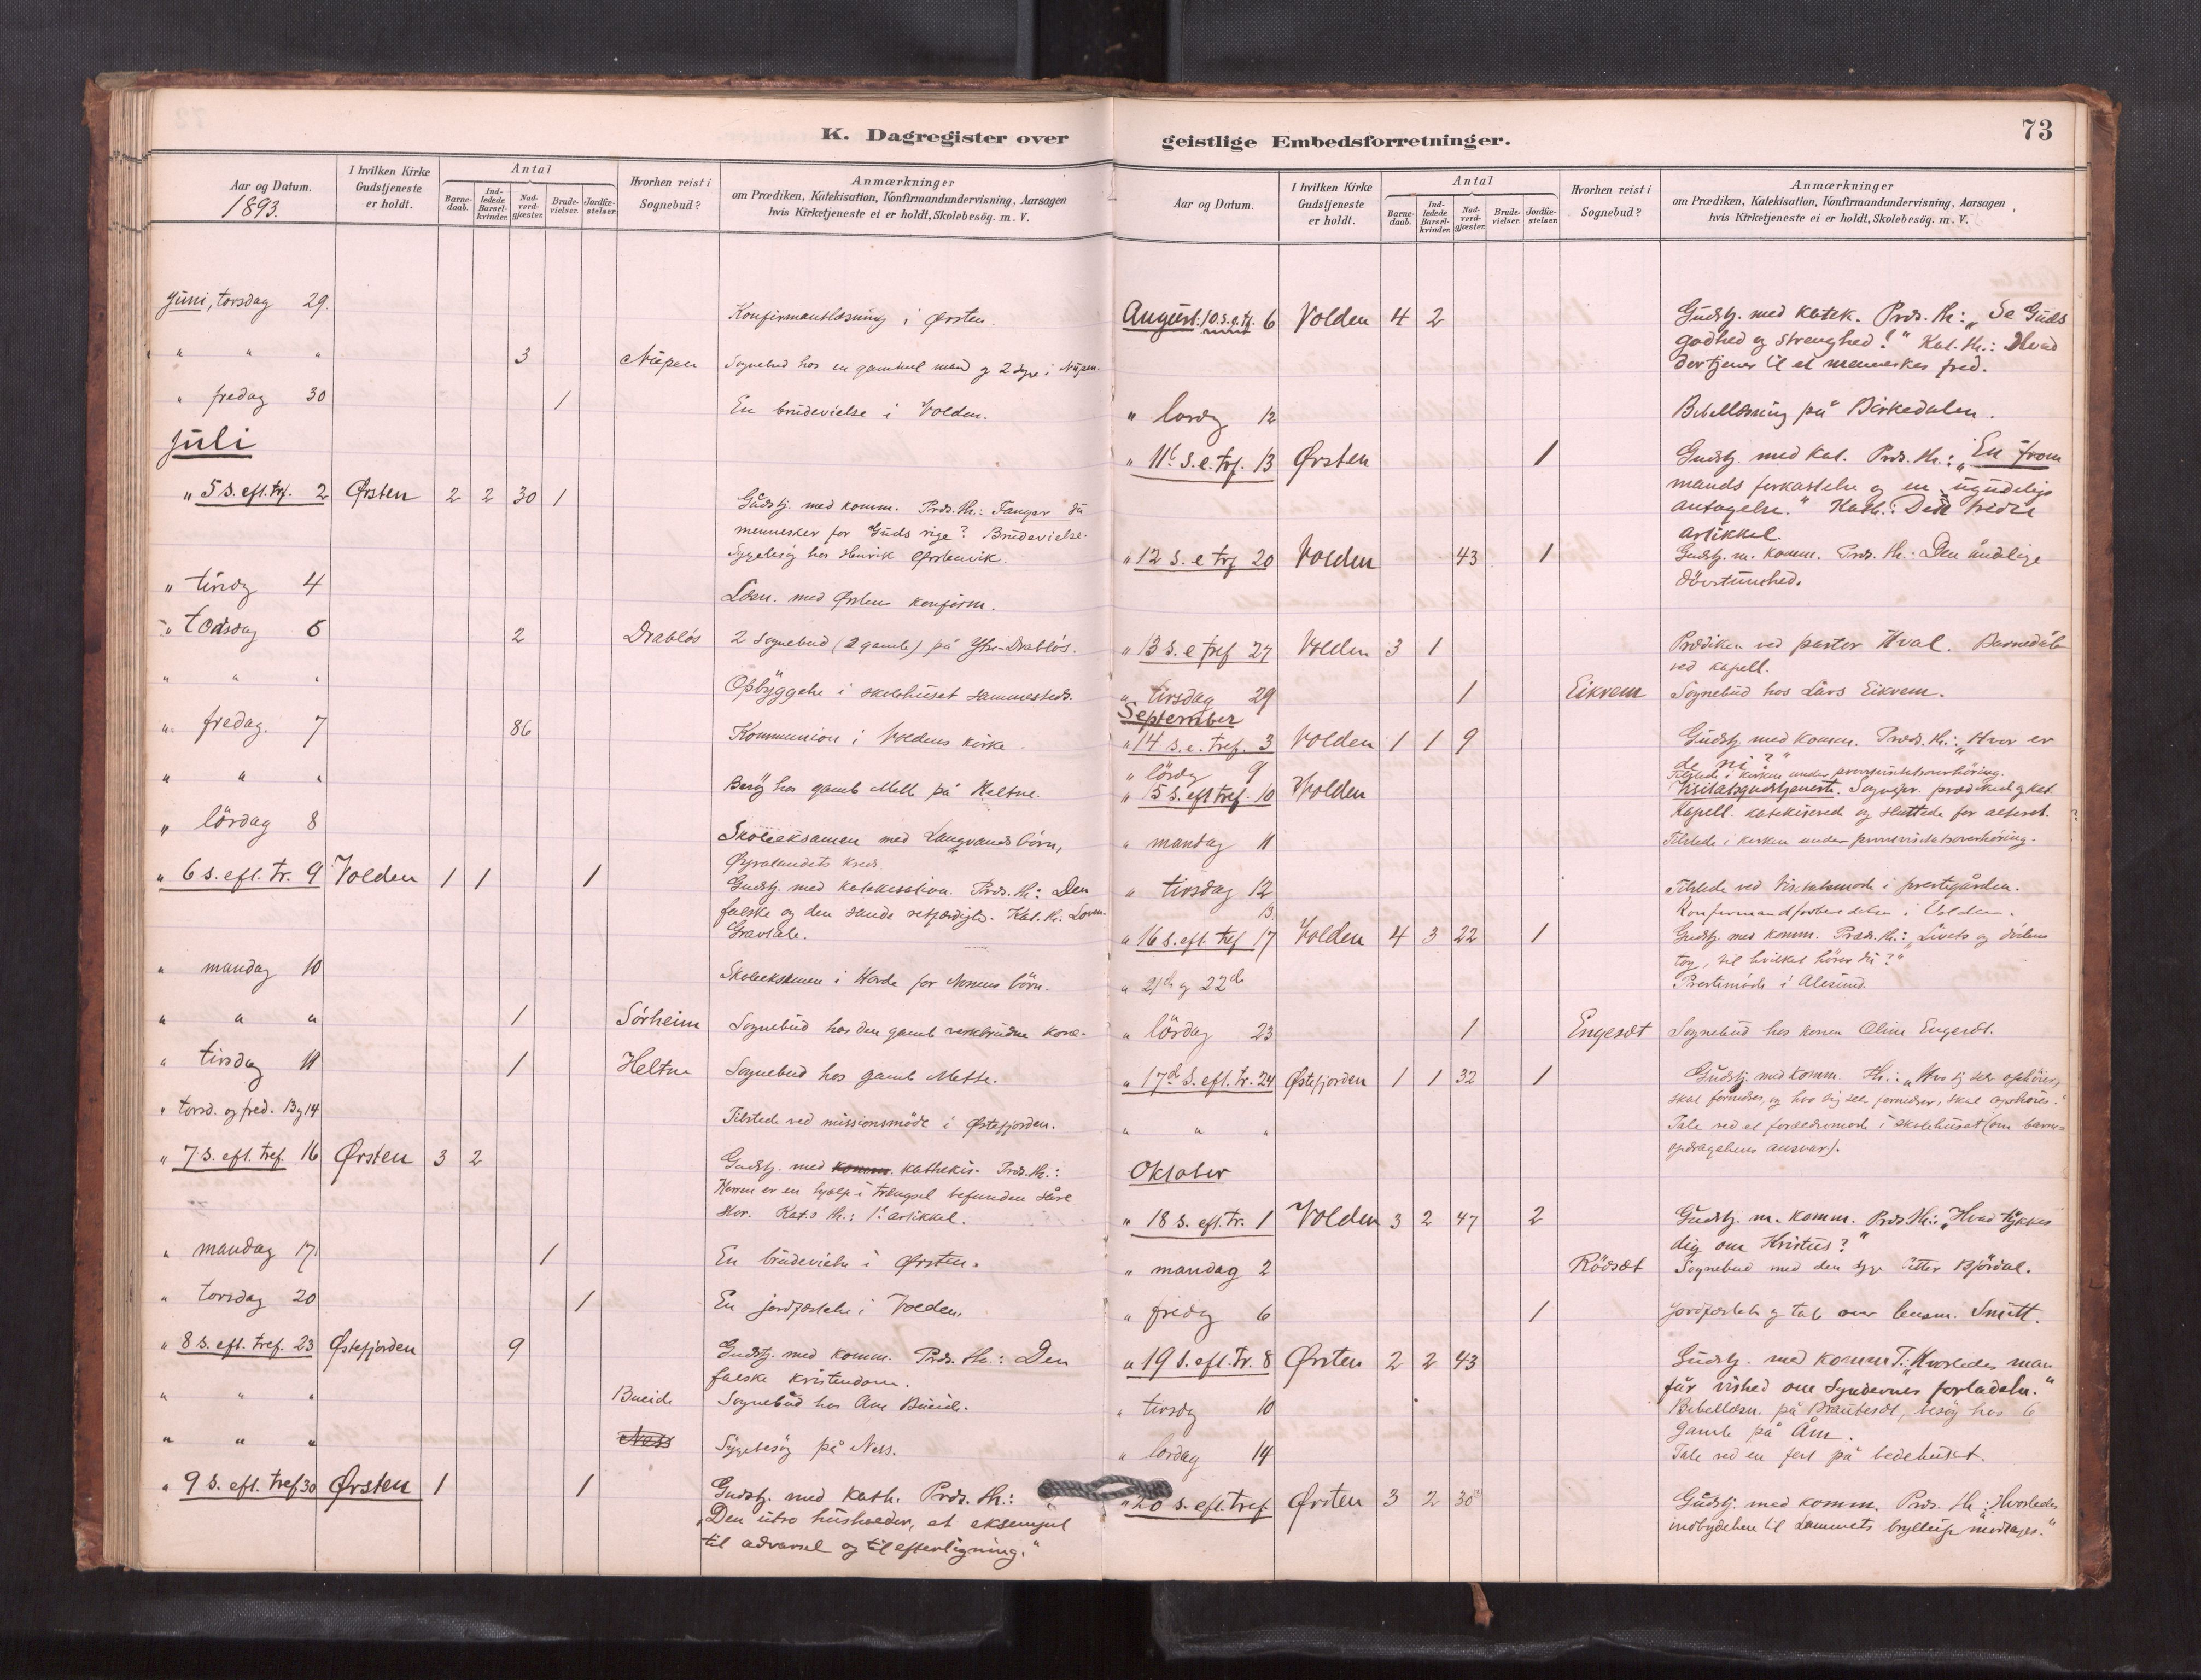 K. Dagregister over
Aar og Datum.
1893.
I hvilken Kirke Gudstjeneste er holdt.
Antal
Barnedaab.
Indledede Barselkvinder.
Nadverdgjæster.
Brudevielser.
Jordfæstelser.
Hvorhen reist i Sognebud?
Anmærkninger
om Prædiken, Katekisation, Konfirmandundervisning, Aarsagen
hvis Kirketjeneste ei er holdt, Skolebesög. m. V.
Juni, torsdag 29. Konfirmantlæsning i Ørsten.
" " " 3 Nupen Sognebud hos en gammel mand og 2 syge i Nupen.
" fredag 30 1 En brudevielse i Volden.
Juli
" 5 s. eft. trf. 2 Ørsten 2 2 30 1 Gudstj. med komm. Prds. th.: Fanger du
mennesker for Guds rige? Brudevielse.
Sygebesög hos Henrik Ørstenvik.
" tirsdg 4 Læsn. med Ørstens konfirm.
" Torsdag 6 2 Drabløs 2 Sognebud (2 gamle) på Ytre-Drabløs.
" " " Opbyggelse i skolehuset sammesteds.
" fredag. 7 86 Kommunion i Voldens kirke.
" " " Besög hos gamle på Heltne.
" lördag 8 Skoleeksamen med Langvands börn,
kreds
" 6 s. eft. tr. 9 Volden 1 1 1 Gudstj. med katekisation. Prds. th: Den
falske og den sande retfærdighd. Kat. th:
Gravtale.
" mandag 10 Skoleeksamen i for börn.
" " " 1 Sörheim Sognebud hos den gamle kone.
" tirsdag 11 1 Heltne Sognebud hos gamle Mette.
" torsd. og fred. 13 og 14 Tilstede ved missionsmöde i Østefjorden.
" 7 s. eft. tref. 16 Ørsten 3 2 Gudstj. med komm. kathekis. Prds. th.:
Herren er en hjælp i trængsel befunden såre
stor. Kat.s th.: 1. artikkel.
" mandag 17 1 En brudevielse i Ørsten.
" torsdag 20 1 En jordfæstelse i Volden.
" 8 s. eft. tref. 23 Østefjorden 9 Gudstj. med komm. Prds. th.: Den
falske kristendom.
" " " Bueide Sognebud hos Ane Bueide.
" " " Ness Sygebesög på Ness.
" 9 s. eft. tref 30 Ørsten 1 1 Gudstj. med kath. Prds. th.:
"Den utro husholder, et eksempel
til advarsel og til efterligning."
geistlige Embedsforretninger.
73
Aar og Datum.
I hvilken Kirke Gudstjeneste er holdt.
Antal
Barnedaab.
Indledede Barselkvinder.
Nadverdgjæster.
Brudevielser.
Jordfæstelser.
Hvorhen reist i Sognebud?
Anmærkninger
om Prædiken, Katekisation, Konfirmandundervisning, Aarsagen
hvis Kirketjeneste ei er holdt, Skolebesög. m. V.
August. 10 s. e. tf. 6 Volden 4 2 Gudstj. med katek. Prds. th: "Se Guds
godhed og strenghed!" Kat. th.: Hvad
der tjener til et menneskes fred.
" lördg 12 Bibellæsning på Birkedalen.
" 11t s. e. trf. 13 Ørsten 1 Gudstj. med kat. Prds. th.: "En from
mands forkastelse og en ugudeligs
antagelse." Kath.: Den tredie
artikkel.
" 12 s. e trf 20 Volden 43 1 Gudstj. m. komm. Prds. th.: Den åndelige
dövstumhed.
" 13 s. e tref 27 Volden 3 1 Prædiken ved pastor Hval. Barnedåb
ved kapell.
" tirsdag 29 1 Eikrem Sognebud hos Lars Eikrem.
September
" 14 s. e. tref. 3 Volden 1 1 9 Gudstj. med komm. Præds. th.: "Hvor er
de ni?"
" lördg 9 Tilstede i kirken under provsvisitatsoverhöring.
" 15 s. eft tref. 10 Volden Visitatsgudstjeneste. Sognepr. prædiked og kat.
Kapell. katekiserede og sluttede for alteret.
" mandag 11 Tilstede i kirken under provsvisitatsoverhöring.
" tirsdag 12 Tilstede ved Visitatsmöde i prestegården.
13. Konfirmandforberedelse i Volden.
" 16 s. eft. tref 17 Volden 4 3 22 1 Gudstj. med komm. Præds. th.: "Livets og dödens
tog, til hvilket hörer du?"
" 21de og 22de Prestemöde i Ålesund.
" lördag 23 1 Engesæt Sognebud hos konen Oline Engesæt.
" 17de s. eft. tr. 24 Østefjorden 1 1 32 1 Gudstj. med komm. th.: "Hvo sig selv ophöier,
skal fornedres, og hvo sig selv fornedrer, skal ophöies."
" " " Tale ved et forældremöde i skolehuset (om barne-
opdragelsens ansvar).
Oktober
" 18 s. eft. tr. 1 Volden 3 2 47 2 Gudstj. m. komm. Prds. th: "Hvad tykkes
dig om Kristus?"
" mandag 2 Rödsæt Sognebud med den syge Petter Björdal.
" fredg 6 1 Jordfæstelse og tale over lensm. Smitt.
" 19 s. eft. tr. 8 Ørsten 2 2 43 Gudstj. med komm T.: "Hvorledes man
får vished om Syndernes forladelse."
" tirsdg 10 Bibellæsn. på Brautesæt, besög hos 6
gamle på Åm.
" lördag 14 Tale ved en fest på bedehuset.
" 20 s. eft. tref. Ørsten 3 2 30 Gudstj. med komm. Prds. th: "Hvorledes
indbydelsen til Lammets bryllup modtages."